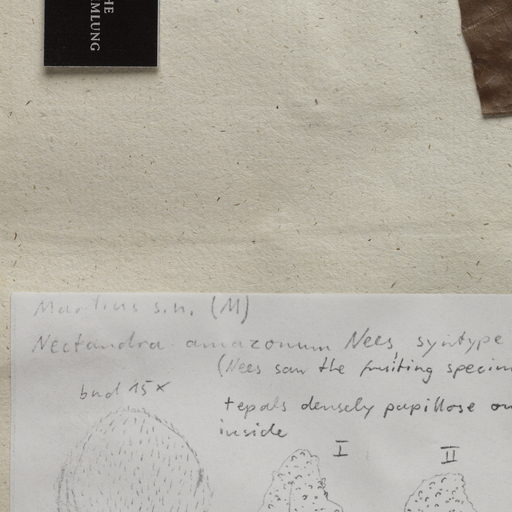 HE
MLUNG
Martius s.n. (M)
Nectandra amazonum Nees, syntype
(Nees saw the fruiting specim
bud 15x
tepals densely papillose on
inside
I
II